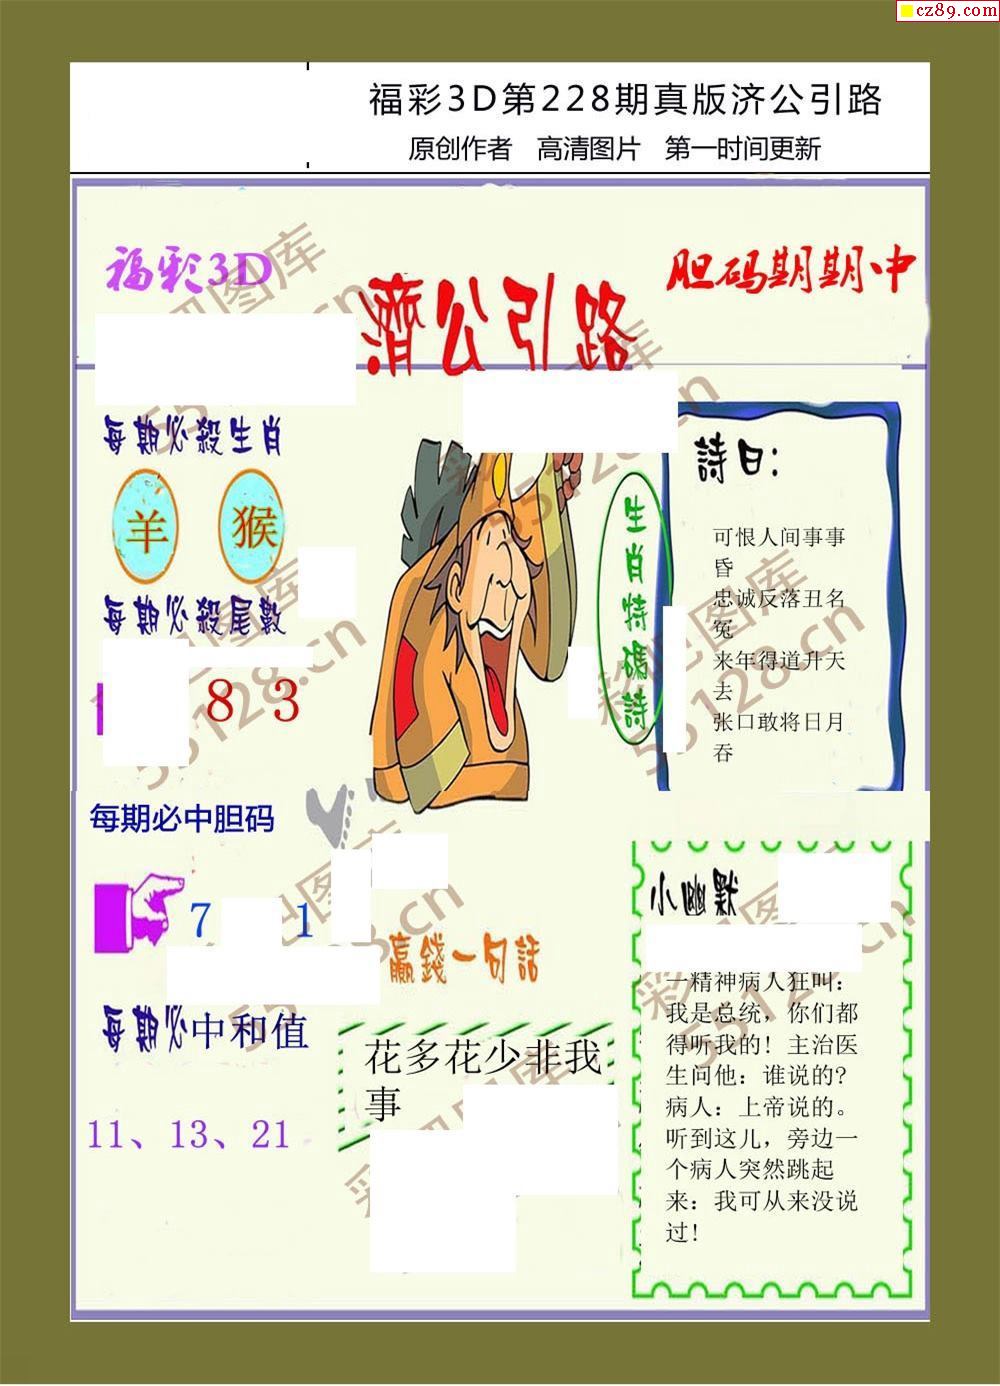 cz89.com
福彩3D第228期真版济公引路
原创作者 高清图片 第一时间更新
福彩3D
濟公引路
胆码期期中
每期必殺生肖
羊 猴
每期必殺尾數
8 3
每期必中胆码
7 1
每期必中和值
11、13、21
生肖特碼詩
詩曰:
可恨人间事事
昏
忠诚反落丑名
冤
来年得道升天
去
张口敢将日月
吞
贏錢一句話
花多花少非我
事
小幽默
一精神病人狂叫:
我是总统, 你们都
得听我的! 主治医
生问他: 谁说的?
病人: 上帝说的。
听到这儿, 旁边一
个病人突然跳起
来: 我可从来没说
过!
彩吧图库
55128.cn